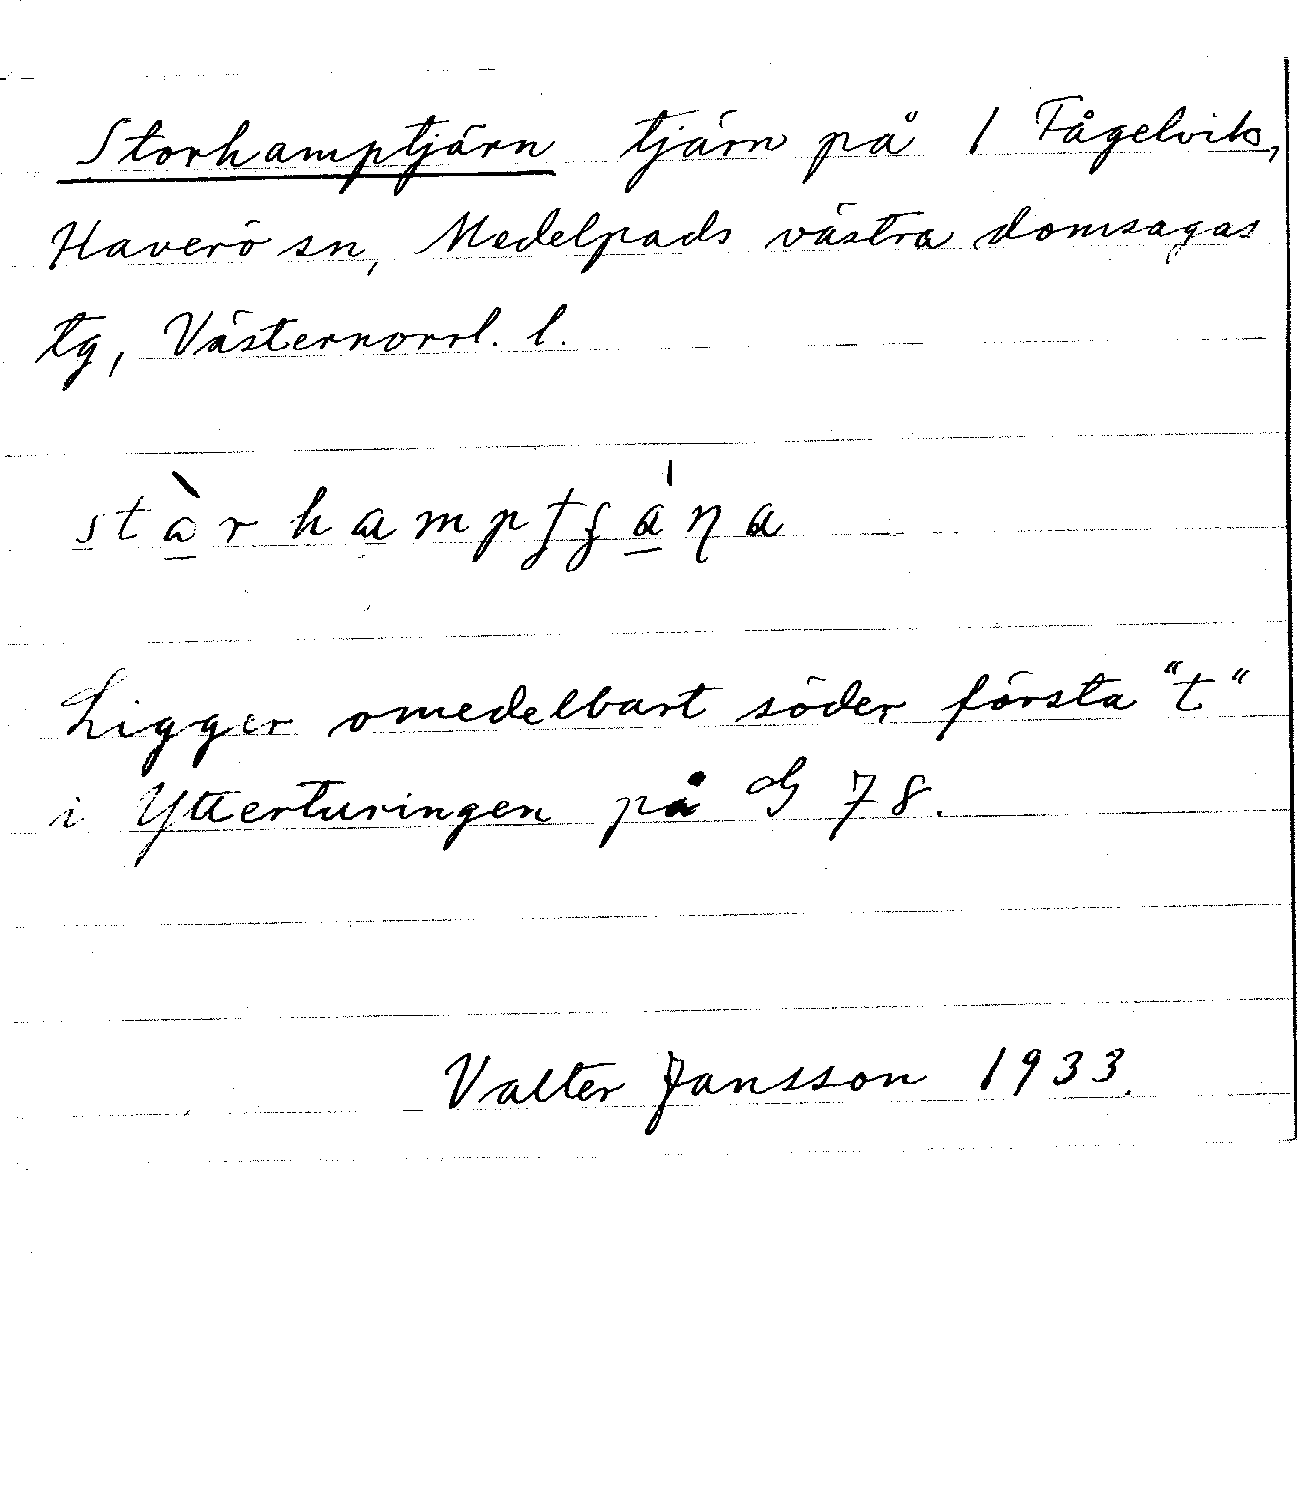 Storhamptjärn tjärn på 1 Fågelvik,
Haverö sn, Medelpads västra domsagas
tg, Västernorrl. l.
Ligger omedelbart söder första "t"
i Ytterturingen på G 78.
Valter Jansson 1933.